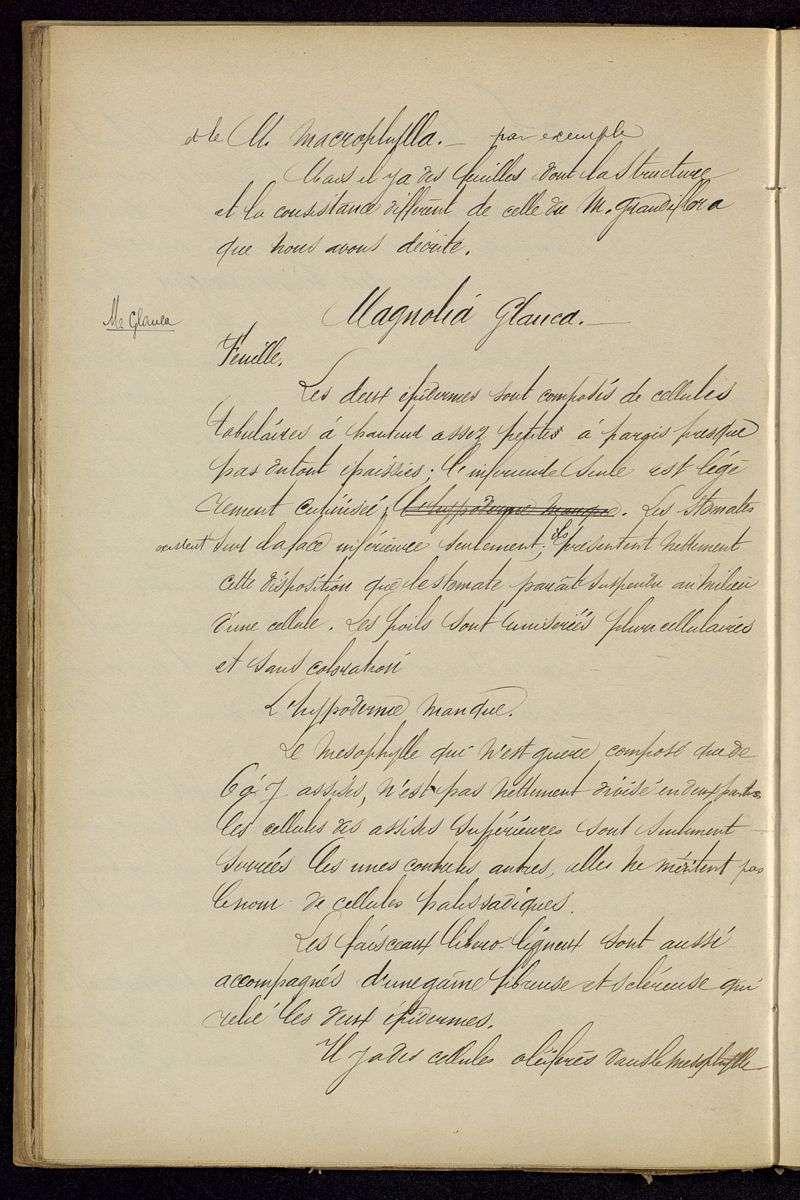 et le M. Macrophylla. — par exemple
Mais il y a des feuilles dont la structure
et la consistance diffèrent de celle du M. Grandiflora
que nous avons décrite.
Magnolia Glauca. —
M. Glauca
Feuille.
Les deux épidermes sont composés de cellules
tabulaires à hauteur assez petites à parois presque
pas du tout épaissies ; l'inférieure seule est légè
rement cutinisée ; l'hypoderme manque. Les stomates
existent sur la face inférieure seulement ; ils présentent nettement
cette disposition que le stomate paraît suspendu au milieu
d'une cellule. Les poils sont unisériés pluricellulaires
et sans coloration
L'hypoderme manque.
Le mesophylle qui n'est guère composé que de
6 à 7 assises, n'est pas nettement divisé en deux parties
les cellules des assises supérieures sont seulement
serrées les unes contre les autres, elles ne méritent pas
le nom de cellules palissadiques.
Les faisceaux libero-ligneux sont aussi
accompagnés d'une gaine fibreuse et scléreuse qui
relie les deux épidermes.
Il y a des cellules oléifères dans le mesophylle